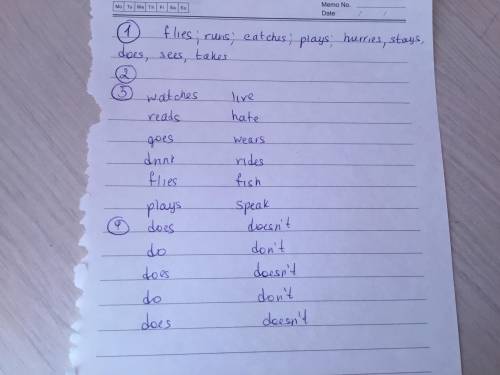 Mo Tu We Th Fr Sa Su
Memo No.
Date / /
1 flies; runs; catches; plays; hurries, stays,
does, sees, takes
2
3 watches live
reads hate
goes wears
drink rides
flies fish
plays speak
4 does doesn't
do don't
does doesn't
do don't
does doesn't